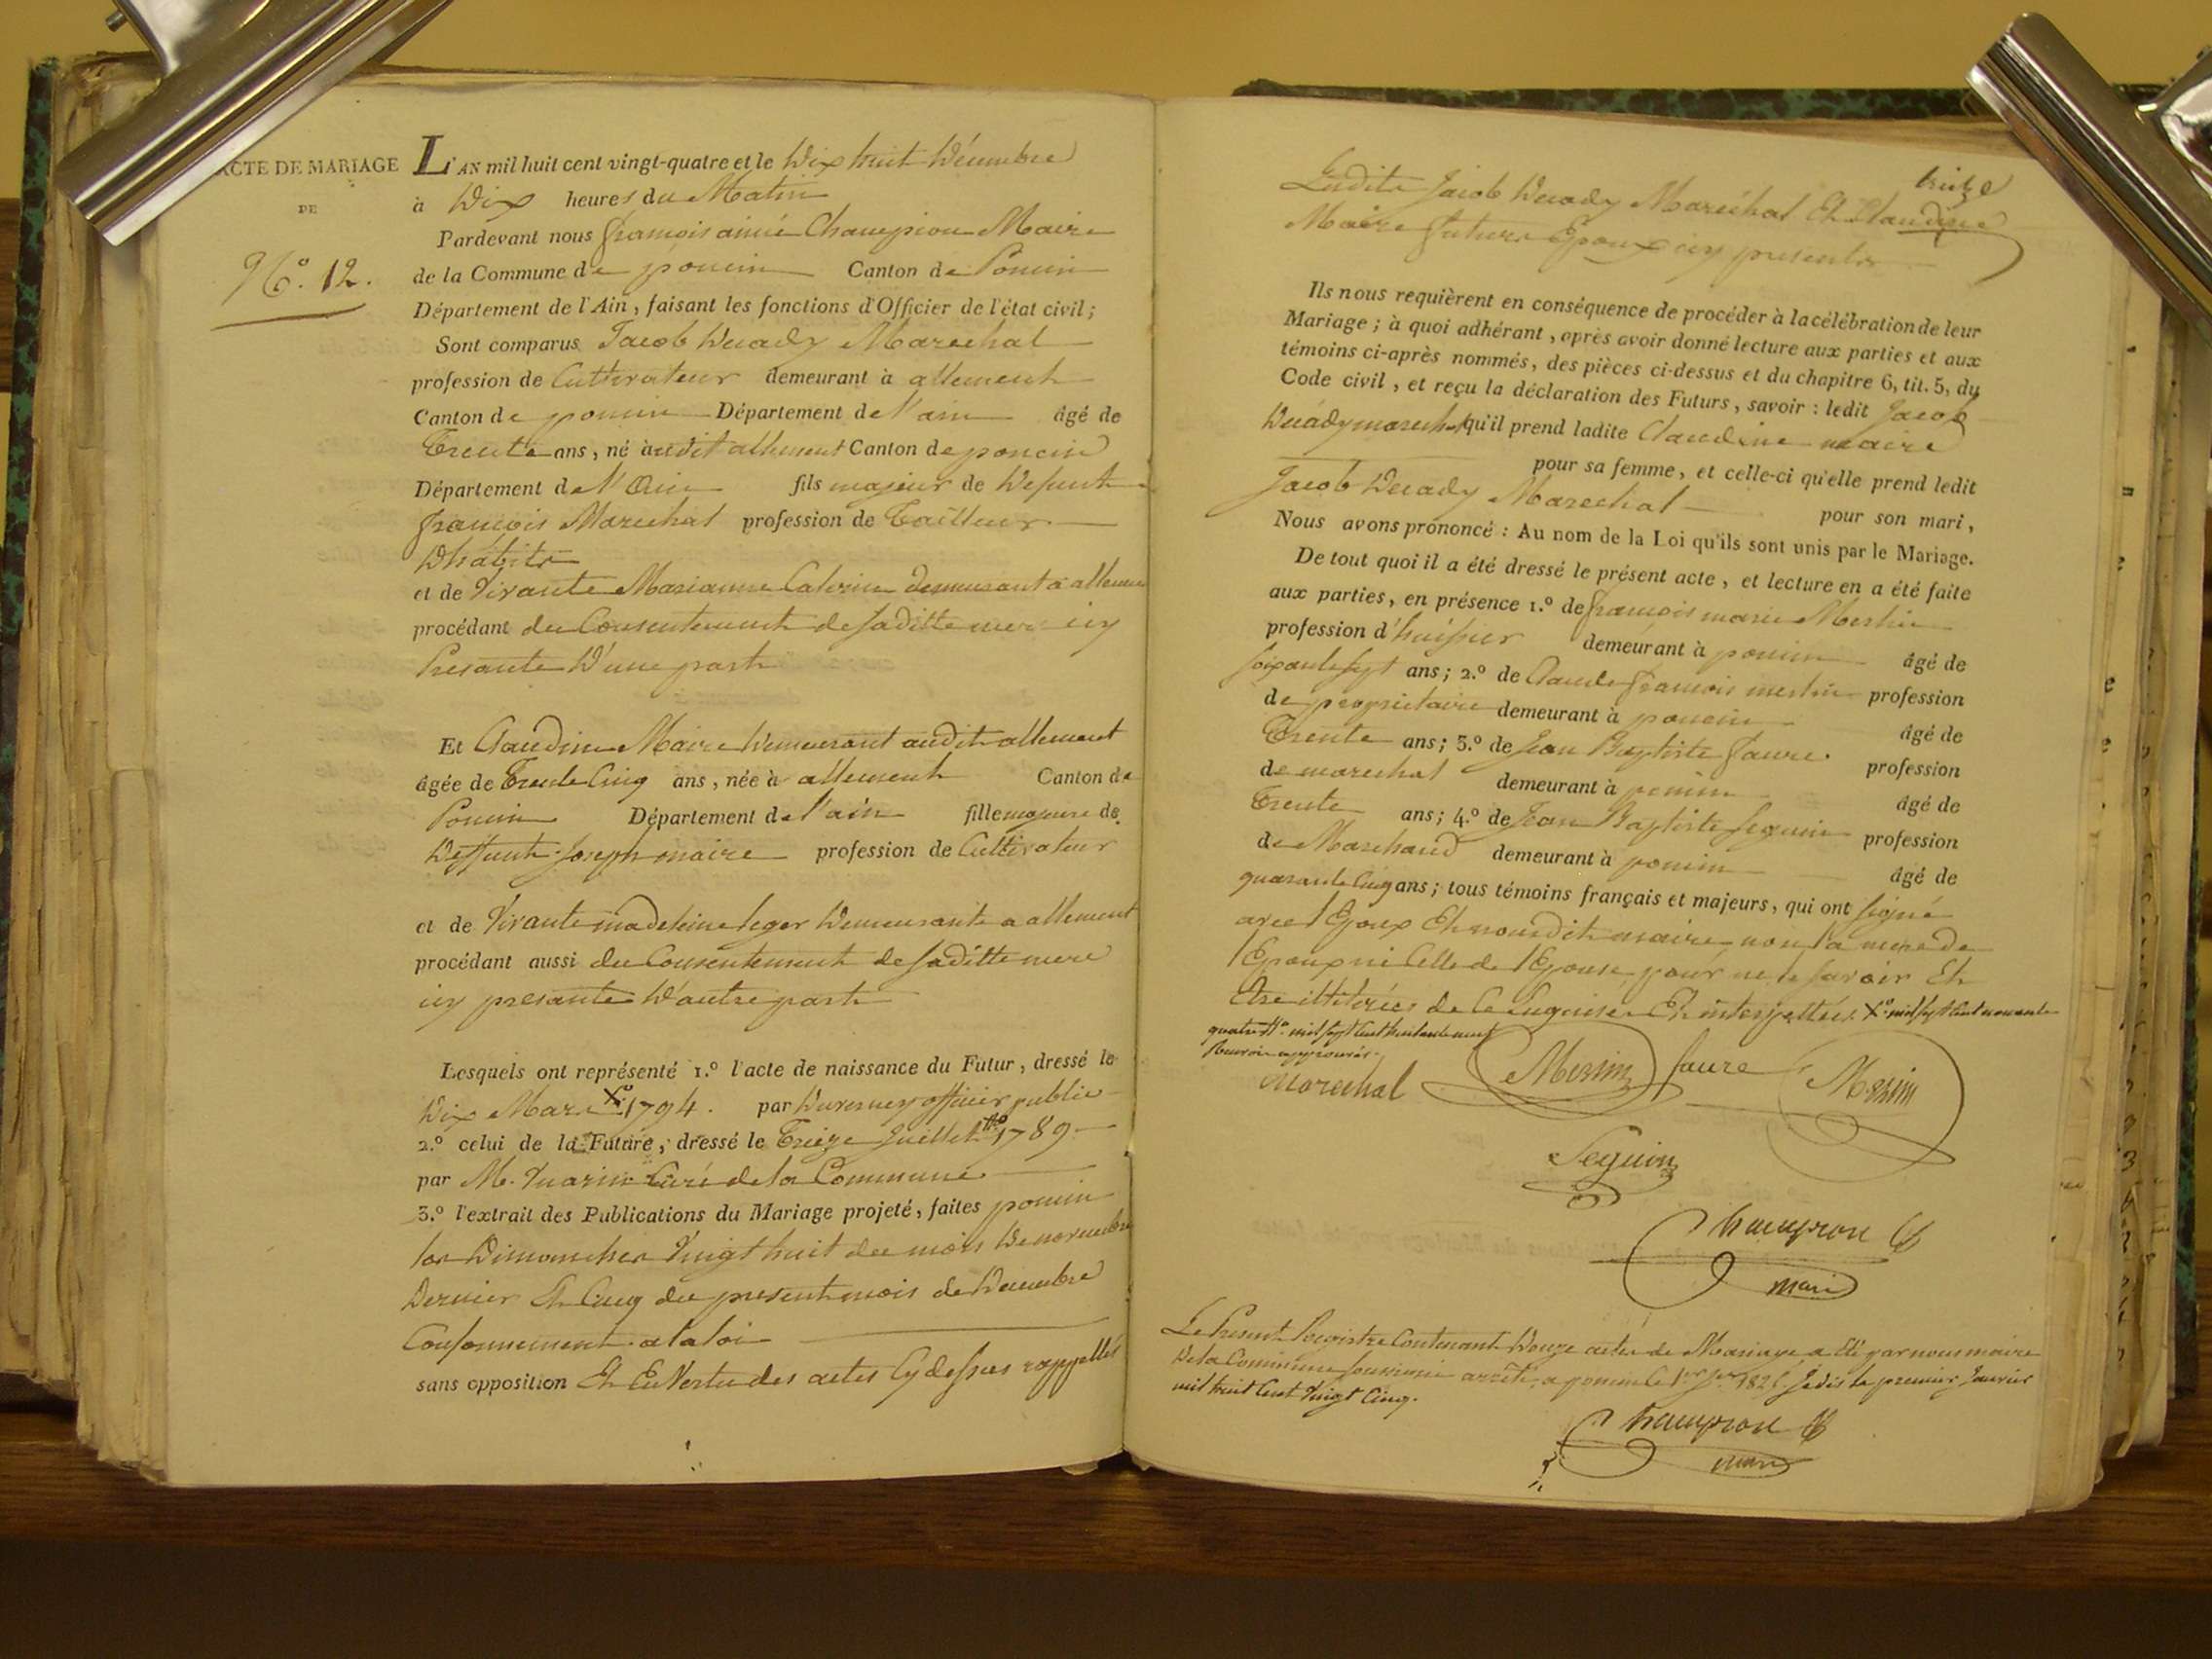 ACTE DE MARIAGE
DE
N.º 12.
L'AN mil huit cent vingt-quatre et le dix huit décembre
à dix heures du Matin
Pardevant nous françois aimé Champion Maire
de la Commune de poncin Canton de Poncin
Département de l'Ain, faisant les fonctions d'Officier de l'état civil;
Sont comparus Jacob Marechal
profession de Cultivateur demeurant à allement
Canton de poncin Département de l'ain âgé de
Trente ans, né audit allement Canton de poncin
Département de l'Ain fils majeur de defunt
françois Marechal profession de Tailleur
d'habits
et de vivante Marianne demeurant a allement
procédant du Consentement de saditte mere icy
Presante d'une part
Et Claudine Maire demeurant audit allement
âgée de Trente Cinq ans, née à allement Canton de
Poncin Département de l'ain fille majeure de
deffunt joseph maire profession de Cultivateur
et de vivante madeleine leger demeurante a allement
procédant aussi du Consentement de saditte mere
icy presante d'autre part
Lesquels ont représenté 1.º l'acte de naissance du Futur, dressé le
dix Mars 1794. par officier public
2.º celui de la Future, dressé le Treize Juillet 1789
par M. Curé de la Commune
3.º l'extrait des Publications du Mariage projeté, faites poncin
les dimanches vingt huit du mois de novembre
dernier Et Cinq du present mois de decembre
Conformement a la loi
sans opposition Et En vertu des actes Cy dessus rappellés
treize
Ledits Jacob Maréchal Et Claudine
Maire futurs Epoux icy presents
Ils nous requièrent en conséquence de procéder à la célébration de leur
Mariage; à quoi adhérant, après avoir donné lecture aux parties et aux
témoins ci-après nommés, des pièces ci-dessus et du chapitre 6, tit. 5, du
Code civil, et reçu la déclaration des Futurs, savoir: ledit Jacob
marechal qu'il prend ladite Claudine maire
pour sa femme, et celle-ci qu'elle prend ledit
Jacob Marechal pour son mari,
Nous avons prononcé: Au nom de la Loi qu'ils sont unis par le Mariage.
De tout quoi il a été dressé le présent acte, et lecture en a été faite
aux parties, en présence 1.º de françois marie
profession d'huissier demeurant à poncin âgé de
soixante sept ans; 2.º de Claude françois profession
de proprietaire demeurant à poncin âgé de
Trente ans; 3.º de Jean Baptiste faure profession
de marechal demeurant à poncin âgé de
Trente ans; 4.º de Jean Baptiste seguin profession
de Marchand demeurant à poncin âgé de
quarante Cinq ans; tous témoins français et majeurs, qui ont signé
avec l'Epoux Et nousdit maire non la mere de
l'Epoux ni Celle de l'Epouse pour ne le savoir Et
Etre illitérées de Ce Enquises Et interpellées. mil sept Cent nonante
quatre mil sept Cent huitante neuf
approuvés
marechal
faure
Seguin
Champion
maire
Le Present Registre Contenant douze actes de Mariage a été par nous maire
de la Commune soussigné arrêté a poncin le 1er Jer 1825 Je dis le premier Janvier
mil huit Cent vingt Cinq.
Champion
maire